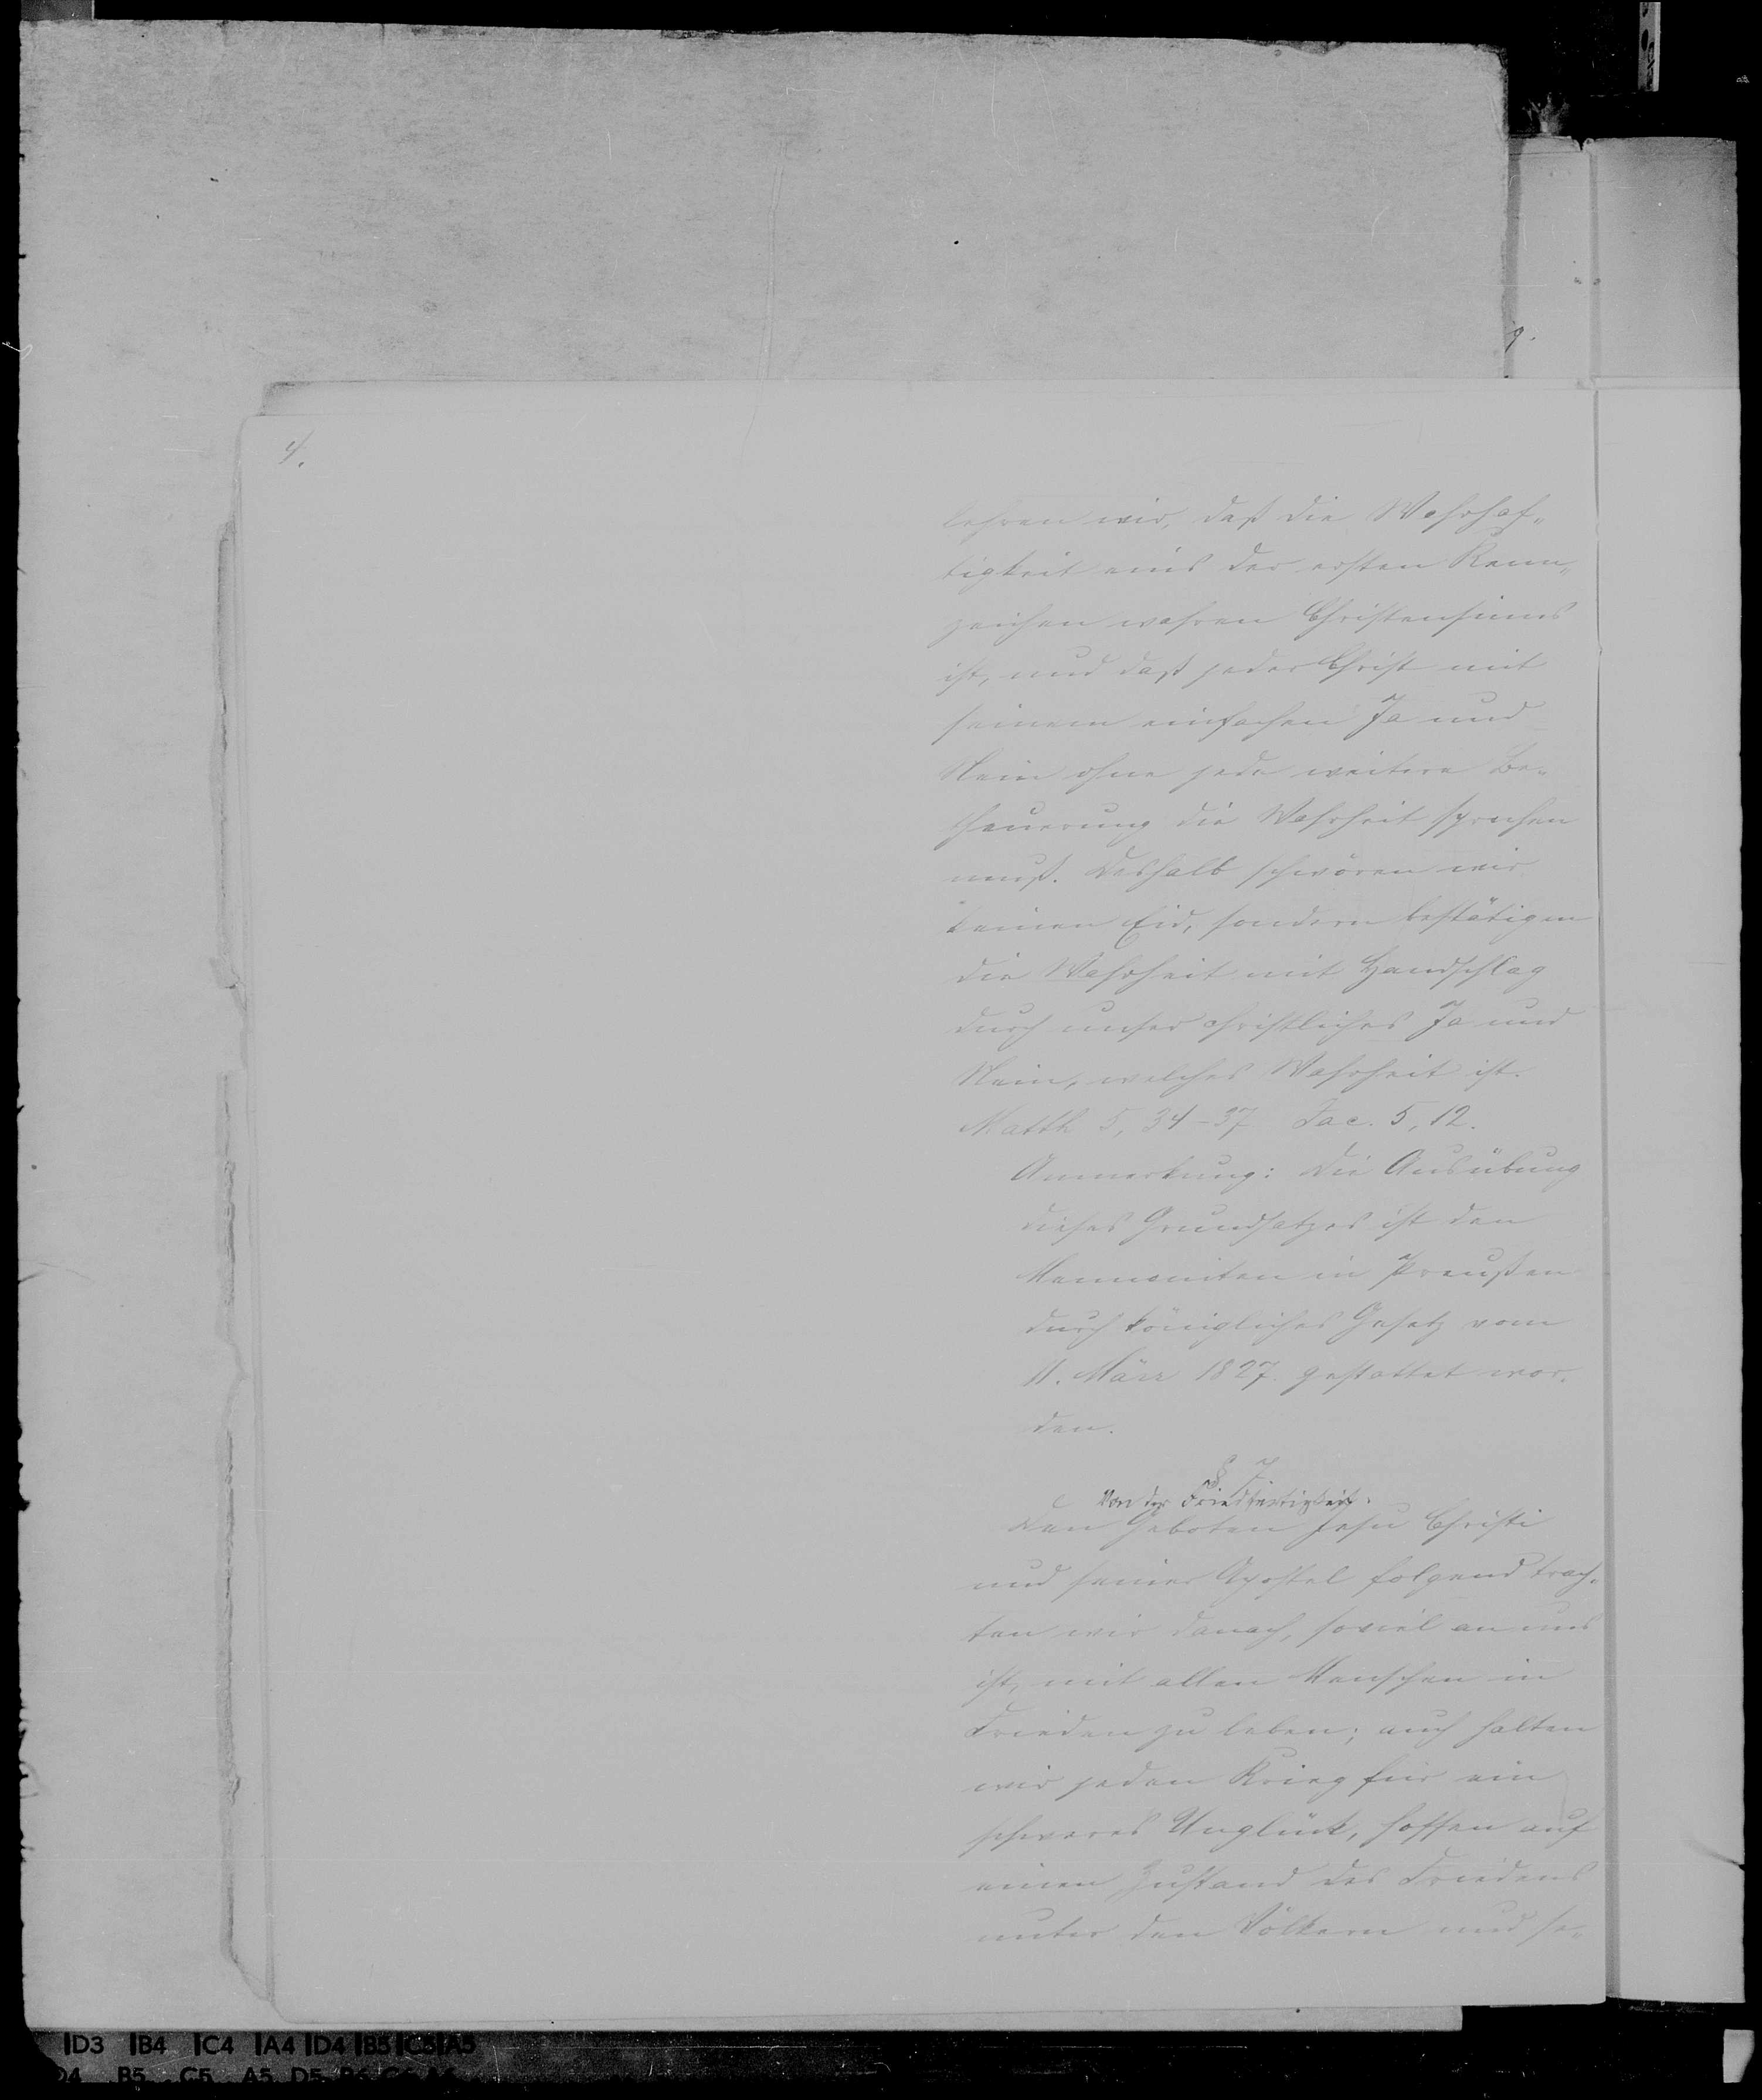 9.
4.
lehren wir, daß die Wahrhaf„
tigkeit eins der ersten Kenn„
zeichen wahren Christensinns
ist, und daß jeder Christ mit
seinem einfachen Ja und
Nein ohne jede weitere Be„
theuerung die Wahrheit sprechen
muß. Deshalb schwören wir
keinen Eid, sondern bestätigen
die Wahrheit mit Handschlag
durch unser christliches Ja und
Nein, welches Wahrheit ist.
Matth 5, 34-37 Jac. 5, 12.
Anmerkung: Die Ausübung
dieses Grundsatzes ist den
Mennoniten in Preußen
durch königliches Gesetz vom
11. März 1827 gestattet wor„
den.
§ 7.
Von der Friedfertigkeit.
Den Geboten Jesu Christi
und seiner Apostel folgend trach„
ten wir danach, soviel an uns
ist, mit allen Menschen in
Frieden zu leben; auch halten
wir jeden Krieg für ein
schweres Unglück, hoffen auf
einen Zustand des Friedens
unter den Völkern und se„
D3 B4 C4 A4 D4 B5 C5 A5
D4 B5 C5 A5 D5 B6 C6 A6